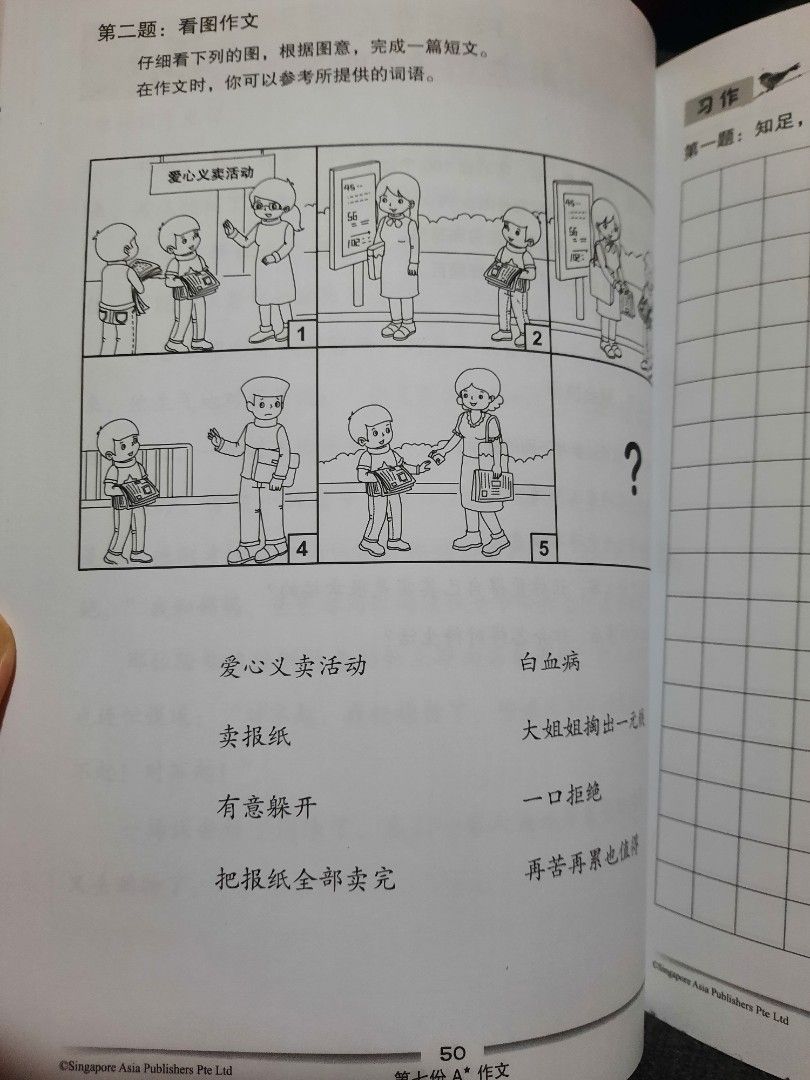 第二题：看图作文
仔细看下列的图，根据图意，完成一篇短文。
在作文时，你可以参考所提供的词语。
爱心义卖活动
1
2
4
5
?
爱心义卖活动 白血病
卖报纸 大姐姐掏出一元
有意躲开 一口拒绝
把报纸全部卖完 再苦再累也值得
©Singapore Asia Publishers Pte Ltd
50
第七份 A* 作文
习作
第一题：知足，
©Singapore Asia Publishers Pte Ltd